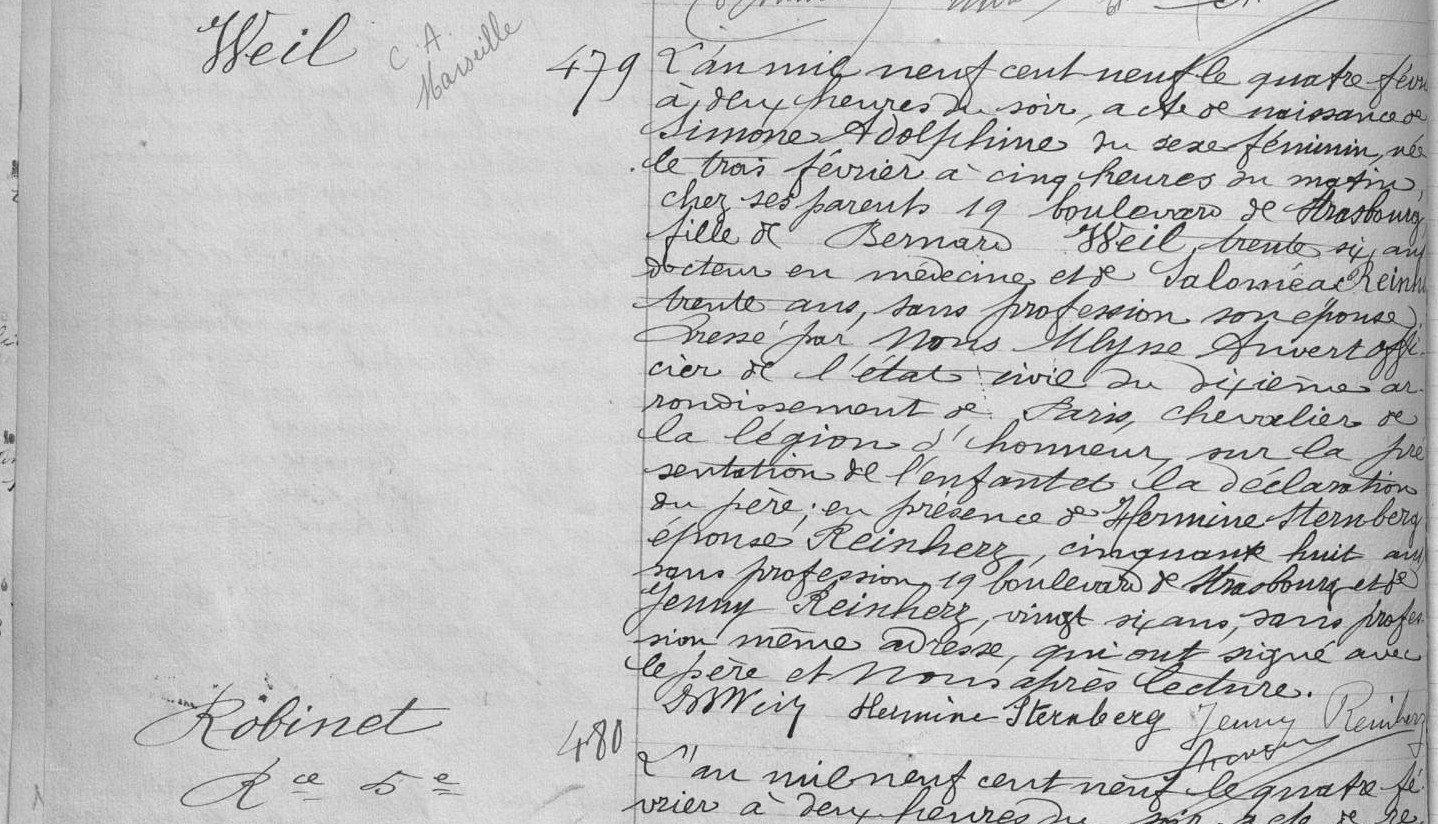 Weil
C. A.
Marseille
479
L'an mil neuf cent neuf le quatre févri
à deux heures du soir, acte de naissance de
Simone Adolphine du sexe féminin, née
le trois février à cinq heures du matin,
chez ses parents 19 boulevard de Strasbourg,
fille de Bernard Weil, trente six ans
docteur en médecine et de Saloméa Reinh
trente ans, sans profession son épouse.
Dressé par Nous Ulysse Auvert offi-
cier de l'état civil du dixième ar-
rondissement de Paris, chevalier de
la légion d'honneur, sur la pré
sentation de l'enfant et la déclaration
du père; en présence de Hermine Sternberg
épouse Reinherz, cinquante huit ans
sans profession, 19 boulevard de Strasbourg et de
Jenny Reinherz, vingt six ans, sans profes-
sion même adresse, qui ont signé avec
le père et Nous après lecture.
Hermine Sternberg Jenny Reinherz
Robinet
Rce 5e
480
L'an mil neuf cent neuf le quatre fé-
vrier à deux heures du soir, acte de